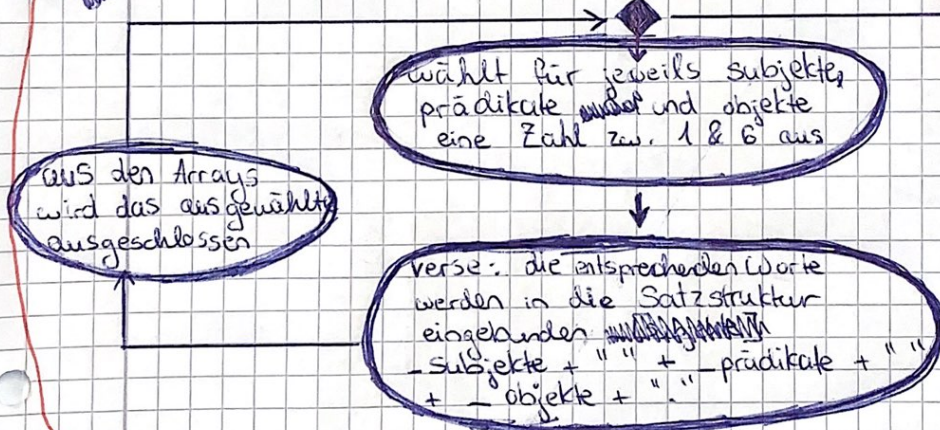 wählt für jeweils subjekte,
prädikate und objekte
eine Zahl zw. 1 & 6 aus
aus den Arrays
wird das ausgewählte
ausgeschlossen
verse: die entsprechenden Worte
werden in die Satzstruktur
eingebunden
_subjekte + " " + _prädikate + " "
+ _ objekte + "."